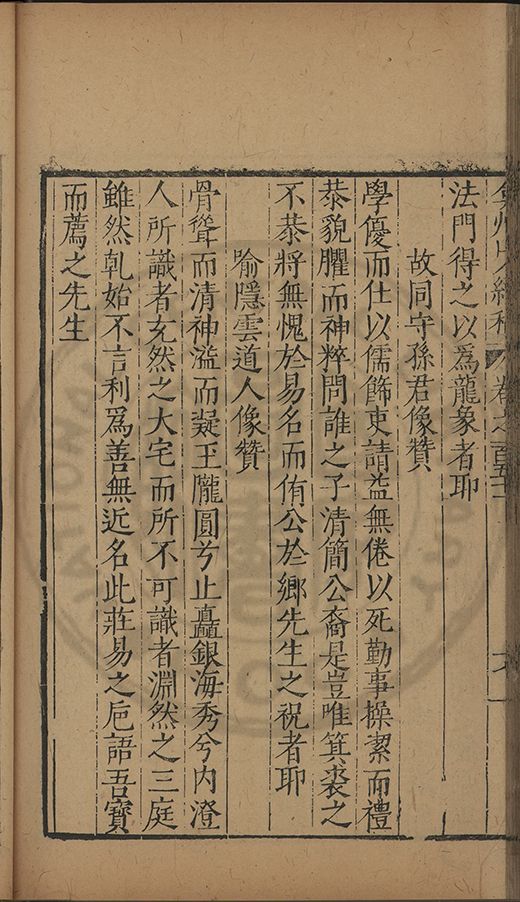 弇州山人續稿 卷之一百五十二
法門得之以爲龍象者耶
故同守孫君像贊
學優而仕以儒飾吏請益無倦以死勤事操潔而禮
恭貌臞而神粹問誰之子清簡公裔是豈唯箕裘之
不恭將無愧於易名而侑公於鄉先生之祝者耶
喻隱雲道人像贊
骨聳而清神溢而凝玉隴圓兮止矗銀海秀兮內澄
人所識者玄然之大宅而所不可識者淵然之三庭
雖然乹始不言利爲善無近名此莊易之巵語吾寶
而薦之先生